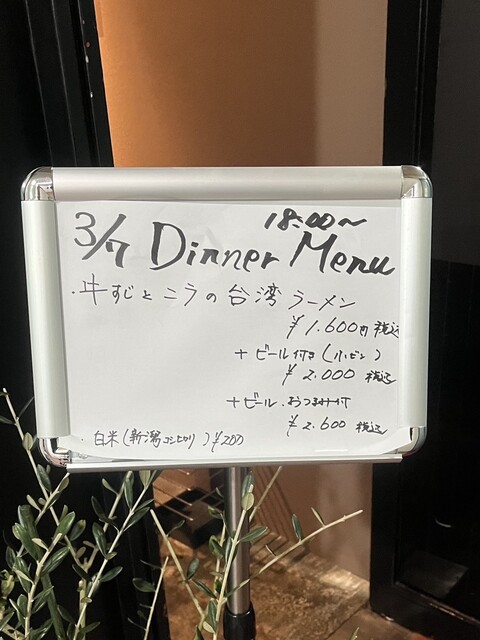 3/7 Dinner Menu
18:00～
・牛すじとニラの台湾ラーメン
¥1.600円税込
+ビール付き(小ビン)
¥2.000税込
+ビール.おつまみ付
¥2.600税込
・白米(新潟コシヒカリ)¥200